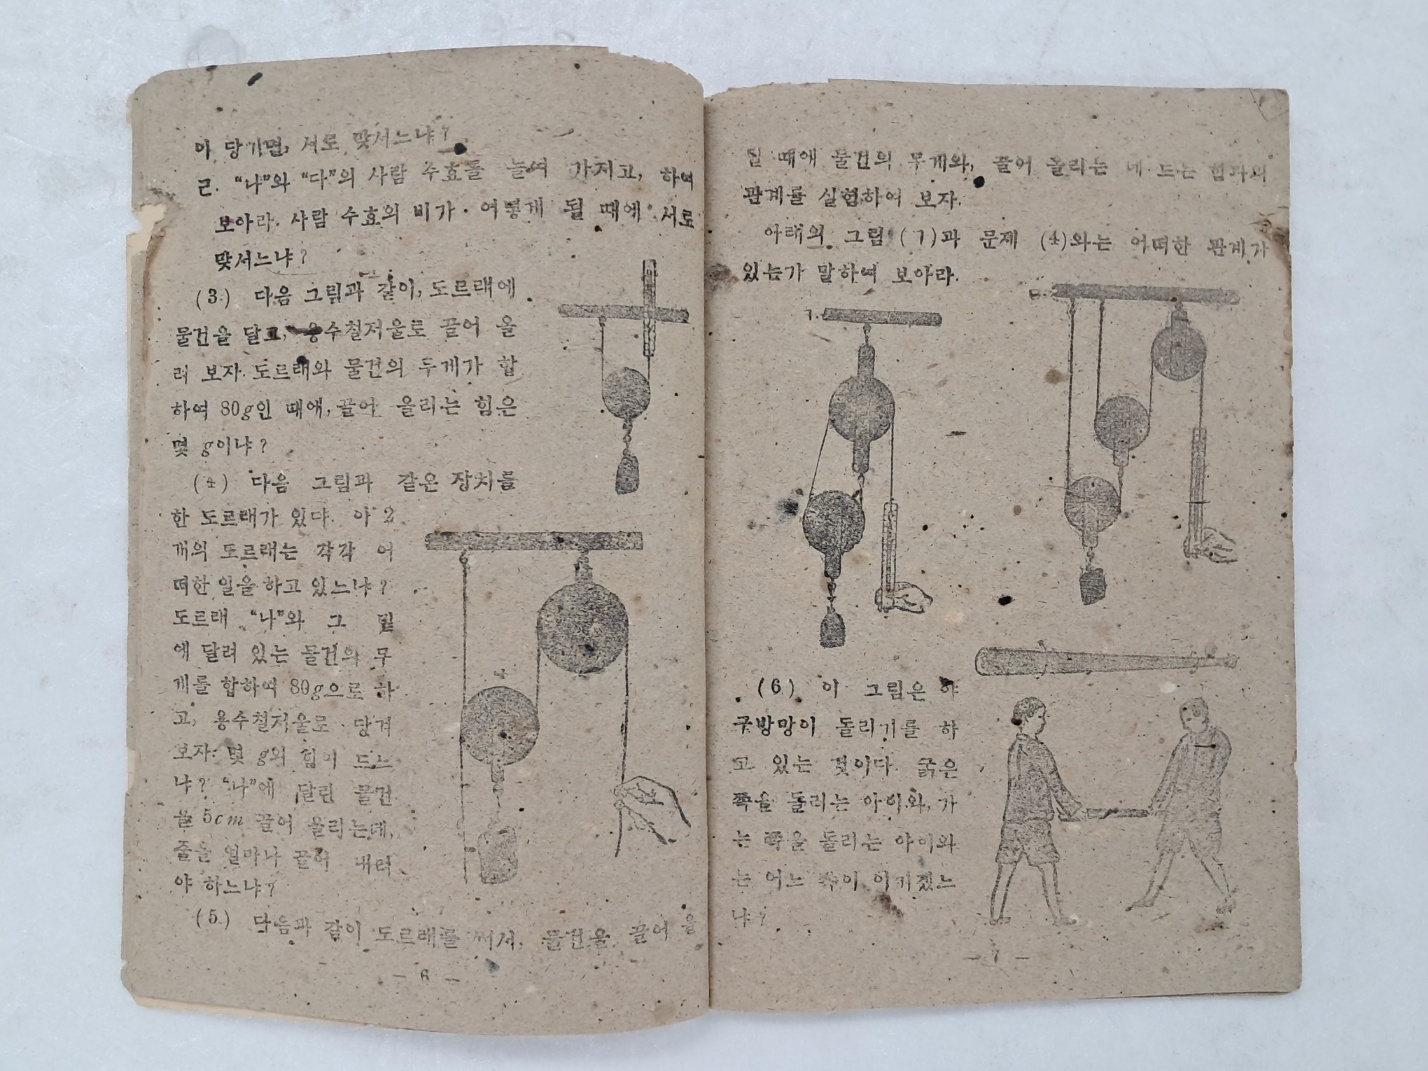 이 당기면, 서로 맞서느냐?
ㄹ. “나”와 “다”의 사람 수효를 늘여 가지고, 하여
보아라. 사람 수효의 비가 어떻게 될 때에 서로
맞서느냐?
(3.) 다음 그림과 같이, 도르래에
물건을 달고, 용수철저울로 끌어 올
려 보자. 도르래와 물건의 무게가 합
하여 80g인 때애, 끌어 올리는 힘은
몇 g이냐?
(4) 다음 그림과 같은 장치를
한 도르래가 있다. 이 2
개의 도르래는 각각 어
떠한 일을 하고 있느냐?
도르래 “나”와 그 밑
에 달려 있는 물건의 무
게를 합하여 80g으로 하
고, 용수철저울로 당겨
보자. 몇 g의 힘이 드느
냐? “나”에 달린 물건
을 5cm 끌어 올리는데,
줄을 얼마나 끌어 내려
야 하느냐?
(5.) 다음과 같이 도르래를 써서, 물건을 끌어 올
— 6 —
될 때애 물건의 무게와, 끌어 올리는 데 드는 힘과의
관계를 실험하여 보자.
아래의 그림 (ㄱ)과 문제 (4)와는 어떠한 관계가
있는가 말하여 보아라.
ㄱ.
(6) 이 그림은 야
구방망이 돌리기를 하
고 있는 것이다. 굵은
쪽을 돌리는 아이와, 가
는 쪽을 돌리는 아이와
는 어느 쪽이 이기겠느
냐?
— 7 —